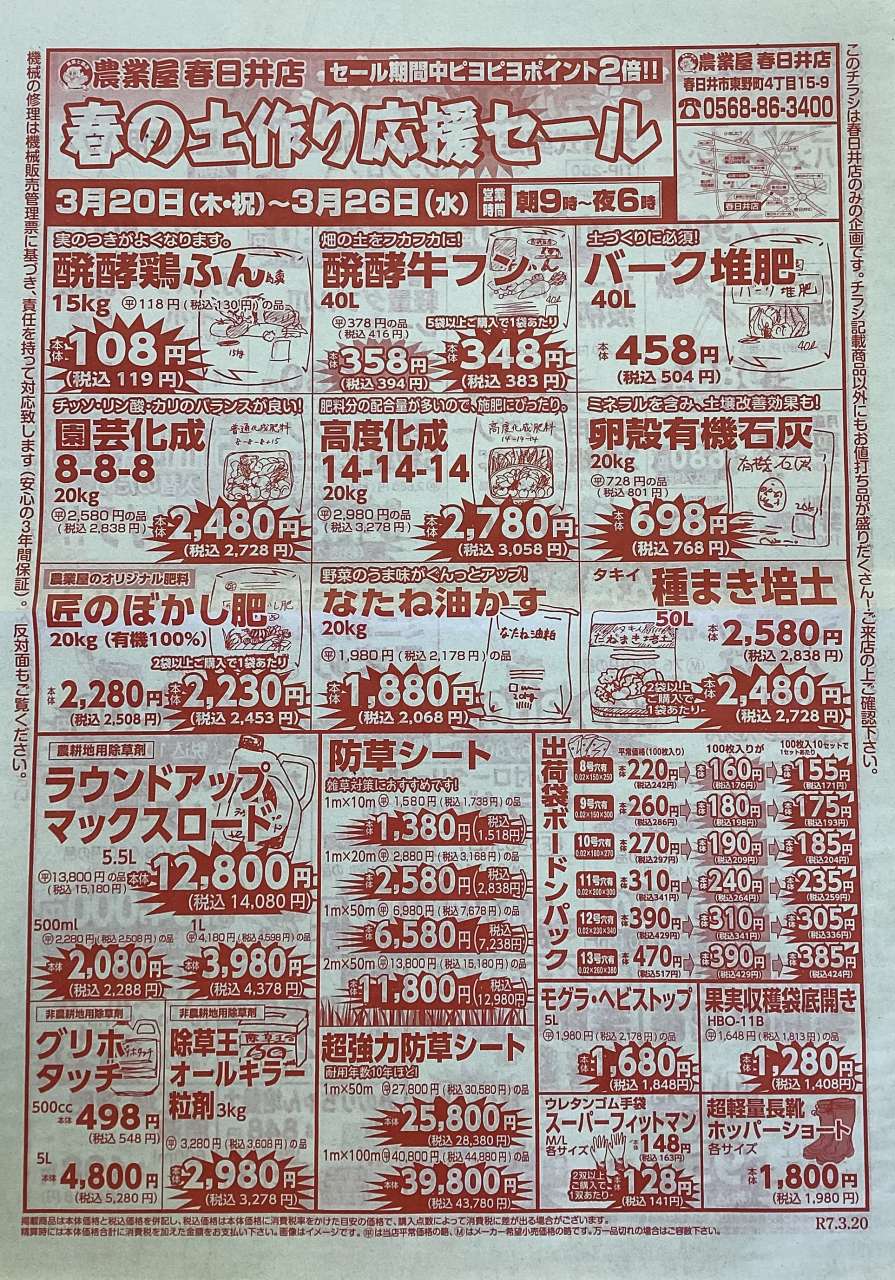 農業屋 春日井店
セール期間中ピヨピヨポイント2倍!!
春の土作り応援セール
3月20日(木・祝)〜3月26日(水)
営業時間 朝9時〜夜6時
農業屋 春日井店
春日井市東野町4丁目15-9
☎0568-86-3400
春日井店
機械の修理は機械販売管理票に基づき、責任を持って対応致します(安心の3年間保証)。 反対面もご覧ください。
このチラシは春日井店のみの企画です。チラシ記載商品以外にもお値打ち品が盛りだくさん!ご来店の上ご確認下さい。
実のつきがよくなります。
醗酵鶏ふん
15kg
㊥118円(税込130円)の品
本体108円
(税込119円)
畑の土をフカフカに!
醗酵牛フン
40L
㊥378円の品
(税込416円)
本体358円
(税込394円)
5袋以上ご購入で1袋あたり
本体348円
(税込383円)
土づくりに必須!
バーク堆肥
40L
バーク堆肥
40L
本体458円
(税込504円)
チッソ・リン酸・カリのバランスが良い!
園芸化成
8-8-8
20kg
普通化成肥料
㊥2,580円の品
(税込2,838円)
本体2,480円
(税込2,728円)
肥料分の配合量が多いので、施肥にぴったり。
高度化成
14-14-14
20kg
高度化成肥料
14-14-14
㊥2,980円の品
(税込3,278円)
本体2,780円
(税込3,058円)
ミネラルを含み、土壌改善効果も!
卵殻有機石灰
20kg
有機石灰
㊥728円の品
(税込801円)
本体698円
(税込768円)
農業屋のオリジナル肥料
匠のぼかし肥
20kg(有機100%)
2袋以上ご購入で1袋あたり
本体2,280円
(税込2,508円)
本体2,230円
(税込2,453円)
野菜のうま味がぐんっとアップ!
なたね油かす
20kg
なたね油粕
20kg
㊥1,980円(税込2,178円)の品
本体1,880円
(税込2,068円)
タキイ 種まき培土
50L
たねまき培土
本体2,580円
(税込2,838円)
2袋以上ご購入で1袋あたり
本体2,480円
(税込2,728円)
農耕地用除草剤
ラウンドアップ
マックスロード
5.5L
㊥13,800円の品
(税込15,180円)
本体12,800円
(税込14,080円)
500ml
㊥2,280円(税込2,508円)の品
本体2,080円
(税込2,288円)
1L
㊥4,180円(税込4,598円)の品
本体3,980円
(税込4,378円)
防草シート
雑草対策におすすめです!
1m×10m ㊥1,580円(税込1,738円)の品
本体1,380円(税込1,518円)
1m×20m ㊥2,880円(税込3,168円)の品
本体2,580円(税込2,838円)
1m×50m ㊥6,980円(税込7,678円)の品
本体6,580円(税込7,238円)
2m×50m ㊥13,800円(税込15,180円)の品
本体11,800円(税込12,980円)
出荷袋ボードンパック
平常価格(100枚入り) 100枚入りが 100枚入10セットで1セットあたり
8号穴有 0.02×150×250 本体220円(税込242円) 本体160円(税込176円) 本体155円(税込171円)
9号穴有 0.02×150×300 本体260円(税込286円) 本体180円(税込198円) 本体175円(税込193円)
10号穴有 0.02×180×270 本体270円(税込297円) 本体190円(税込209円) 本体185円(税込204円)
11号穴有 0.02×200×300 本体310円(税込341円) 本体240円(税込264円) 本体235円(税込259円)
12号穴有 0.02×230×340 本体390円(税込429円) 本体310円(税込341円) 本体305円(税込336円)
13号穴有 0.02×260×380 本体470円(税込517円) 本体390円(税込429円) 本体385円(税込424円)
非農耕地用除草剤
グリホタッチ
500cc
本体498円
(税込548円)
5L
本体4,800円
(税込5,280円)
非農耕地用除草剤
除草王
オールキラー
粒剤3kg
㊥3,280円(税込3,608円)の品
本体2,980円
(税込3,278円)
超強力防草シート
耐用年数10年ほど!
1m×50m ㊥27,800円(税込30,580円)の品
本体25,800円
(税込28,380円)
1m×100m ㊥40,800円(税込44,880円)の品
本体39,800円
(税込43,780円)
モグラ・ヘビストップ
5L
㊥1,980円(税込2,178円)の品
本体1,680円
(税込1,848円)
果実収穫袋底開き
HBO-11B
㊥1,648円(税込1,813円)の品
本体1,280円
(税込1,408円)
ウレタンゴム手袋
スーパーフィットマン
M/L
各サイズ
本体148円
(税込163円)
2双以上ご購入で1双あたり
本体128円
(税込141円)
超軽量長靴
ホッパーショート
各サイズ
本体1,800円
(税込1,980円)
掲載商品は本体価格と税込価格を併記し、税込価格は本体価格に消費税率をかけた目安の価格で、購入点数によって消費税に差が出る場合がございます。
精算時には本体価格合計に消費税を加えた金額をお支払い下さい。画像はイメージです。㊥は当店平常価格の略、Ⓜはメーカー希望小売価格の略です。万一品切れの場合はご容赦下さい。
R7.3.20